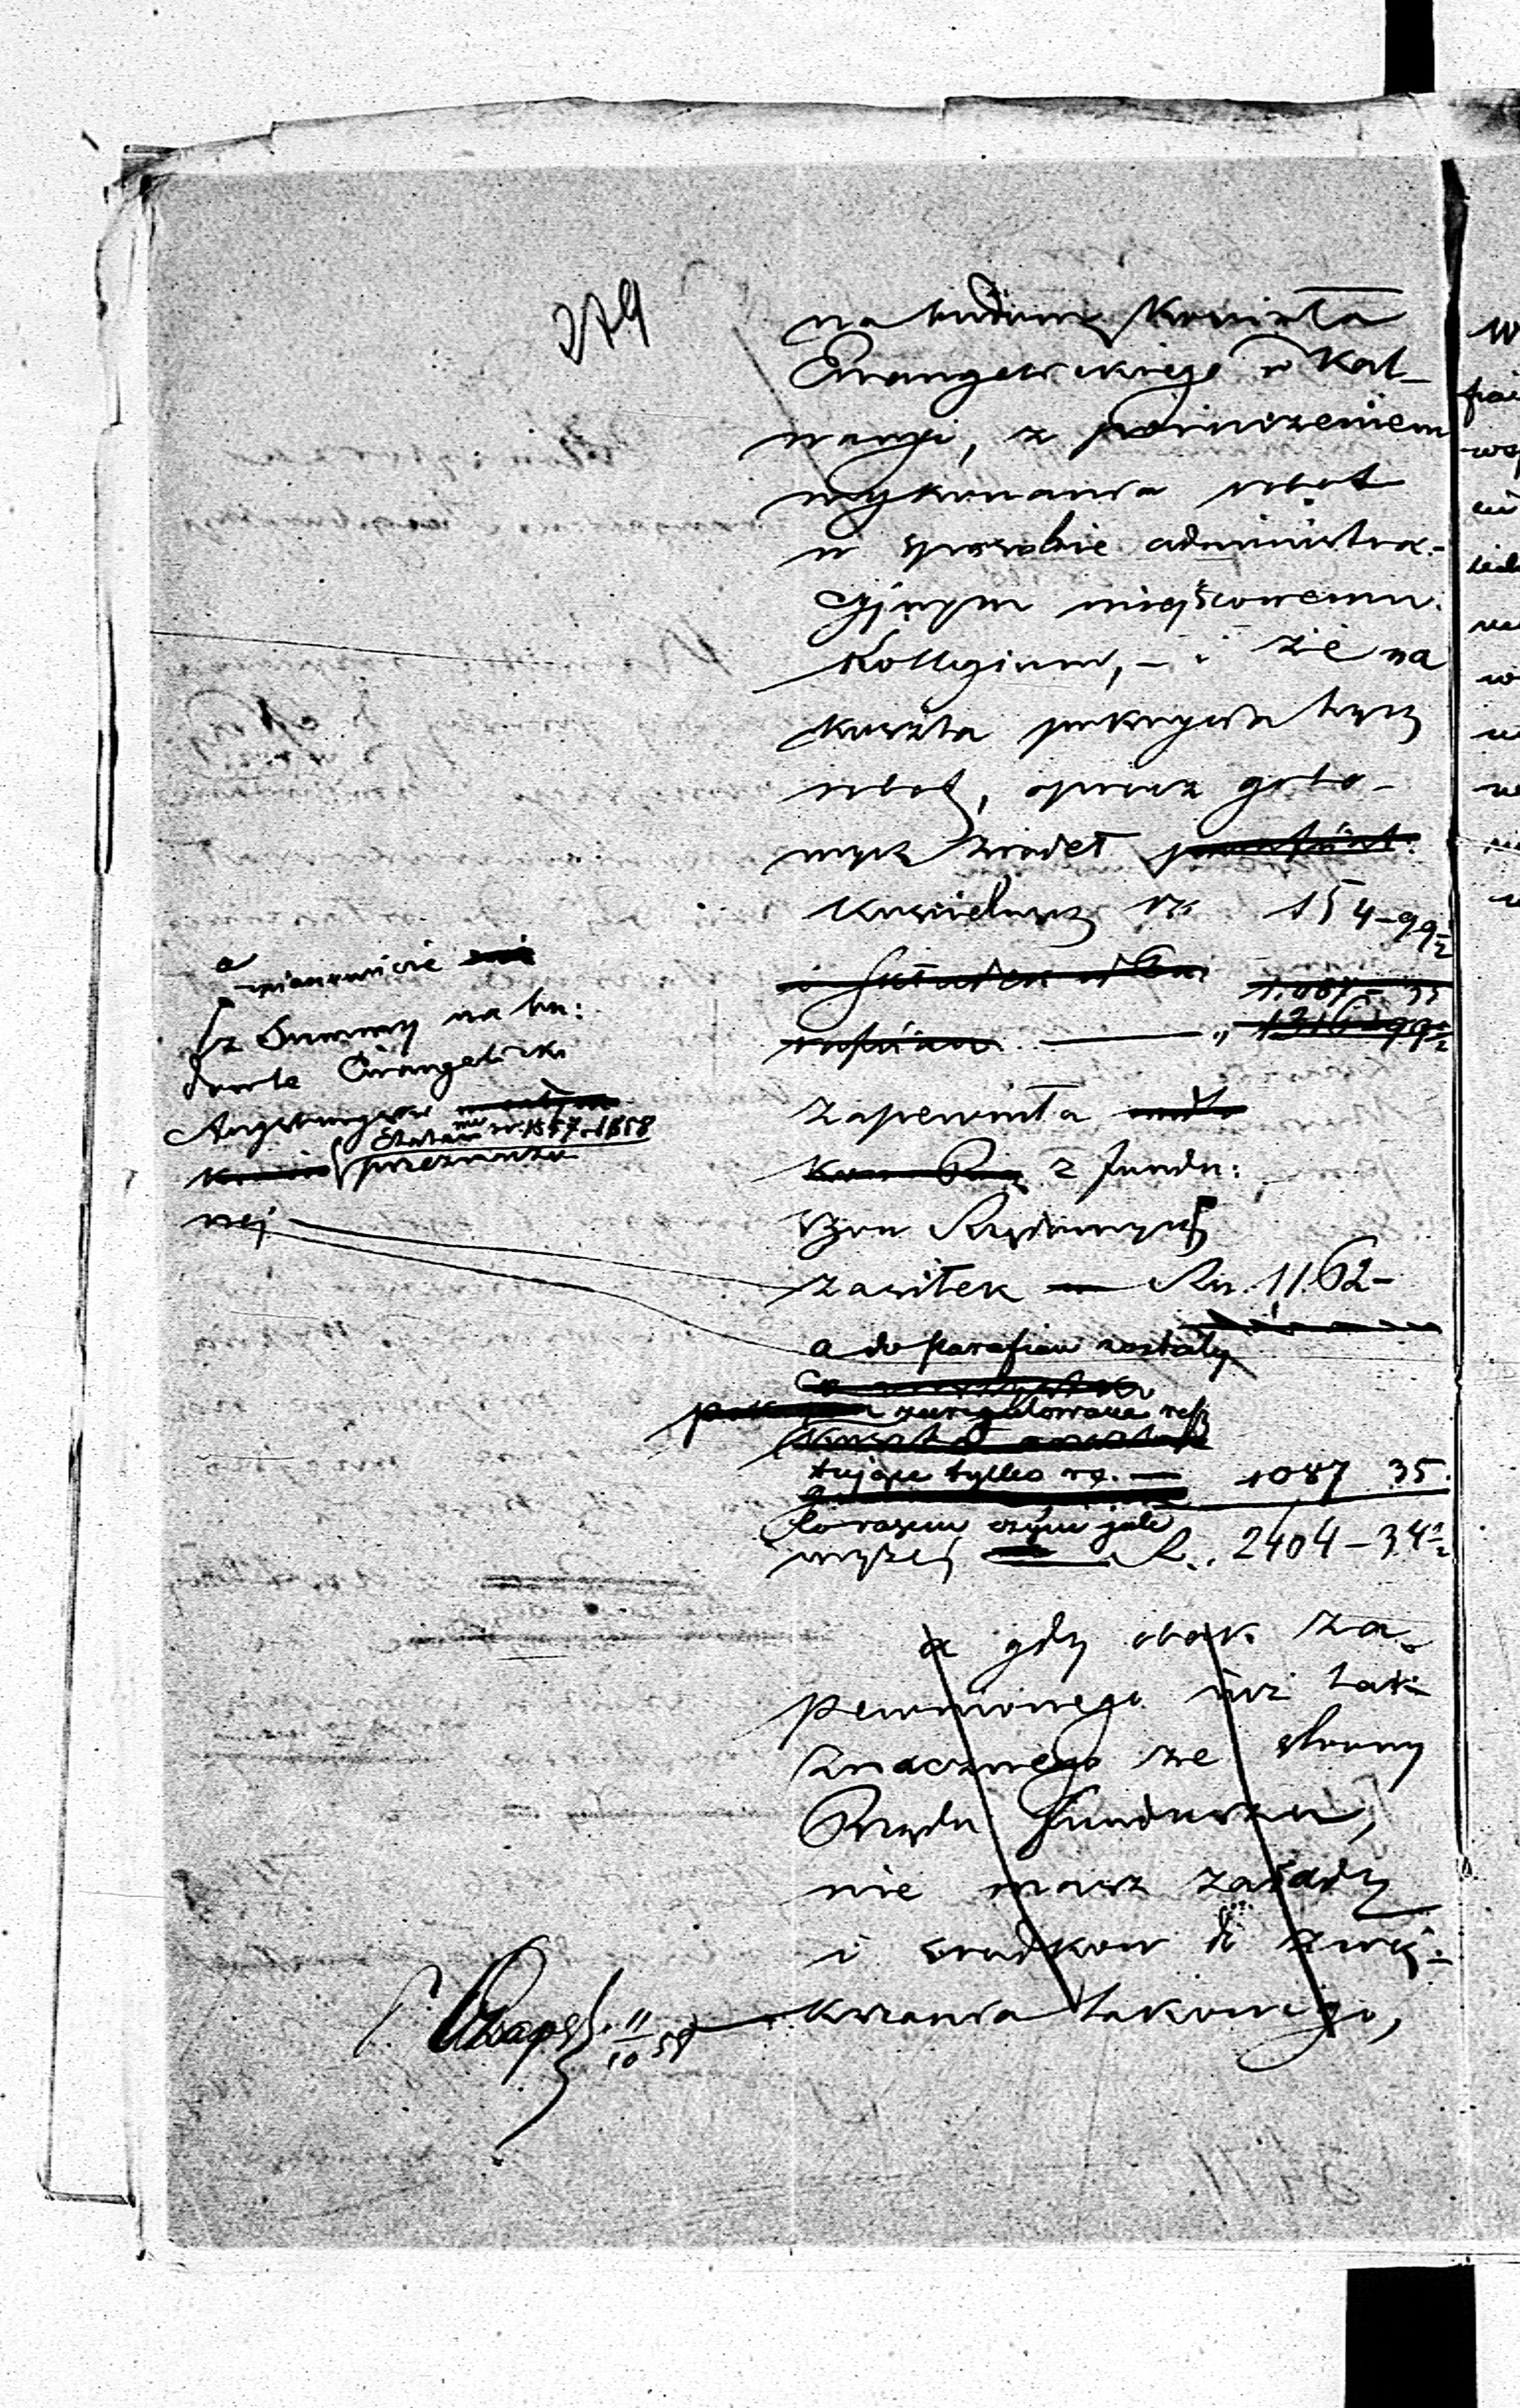 279
na budowę Kościoła
Ewangelickiego w Kal-
waryi, z poruczeniem
wykonania robót
w sposobie administra-
cyjnym miejscowemu
Kollegium, – i że na
koszta pokrycia tych
robót, oprócz goto-
wych źródeł
Kościelnych rs. 154-99½
1,087-35
" 1316-99½
zapewniła
z fundu:
szów Rządowych
zasiłek Rs. 1162-
a do parafian
rozregulowane
tylko rs. 1087 35.
Co razem czyni jak
wyżej R. 2404-34½
a gdy obok za-
pewnionego już tak
znacznego ze strony
Rządu funduszu,
nie masz zasady
i środków do zwię-
kszania takowego,
a
mianowicie
z Summy na bu:
dowle Ewangelicko
Augsburgskie
Etatem na r. 1857 i 1858
przeznaczo
nej
11/10 58